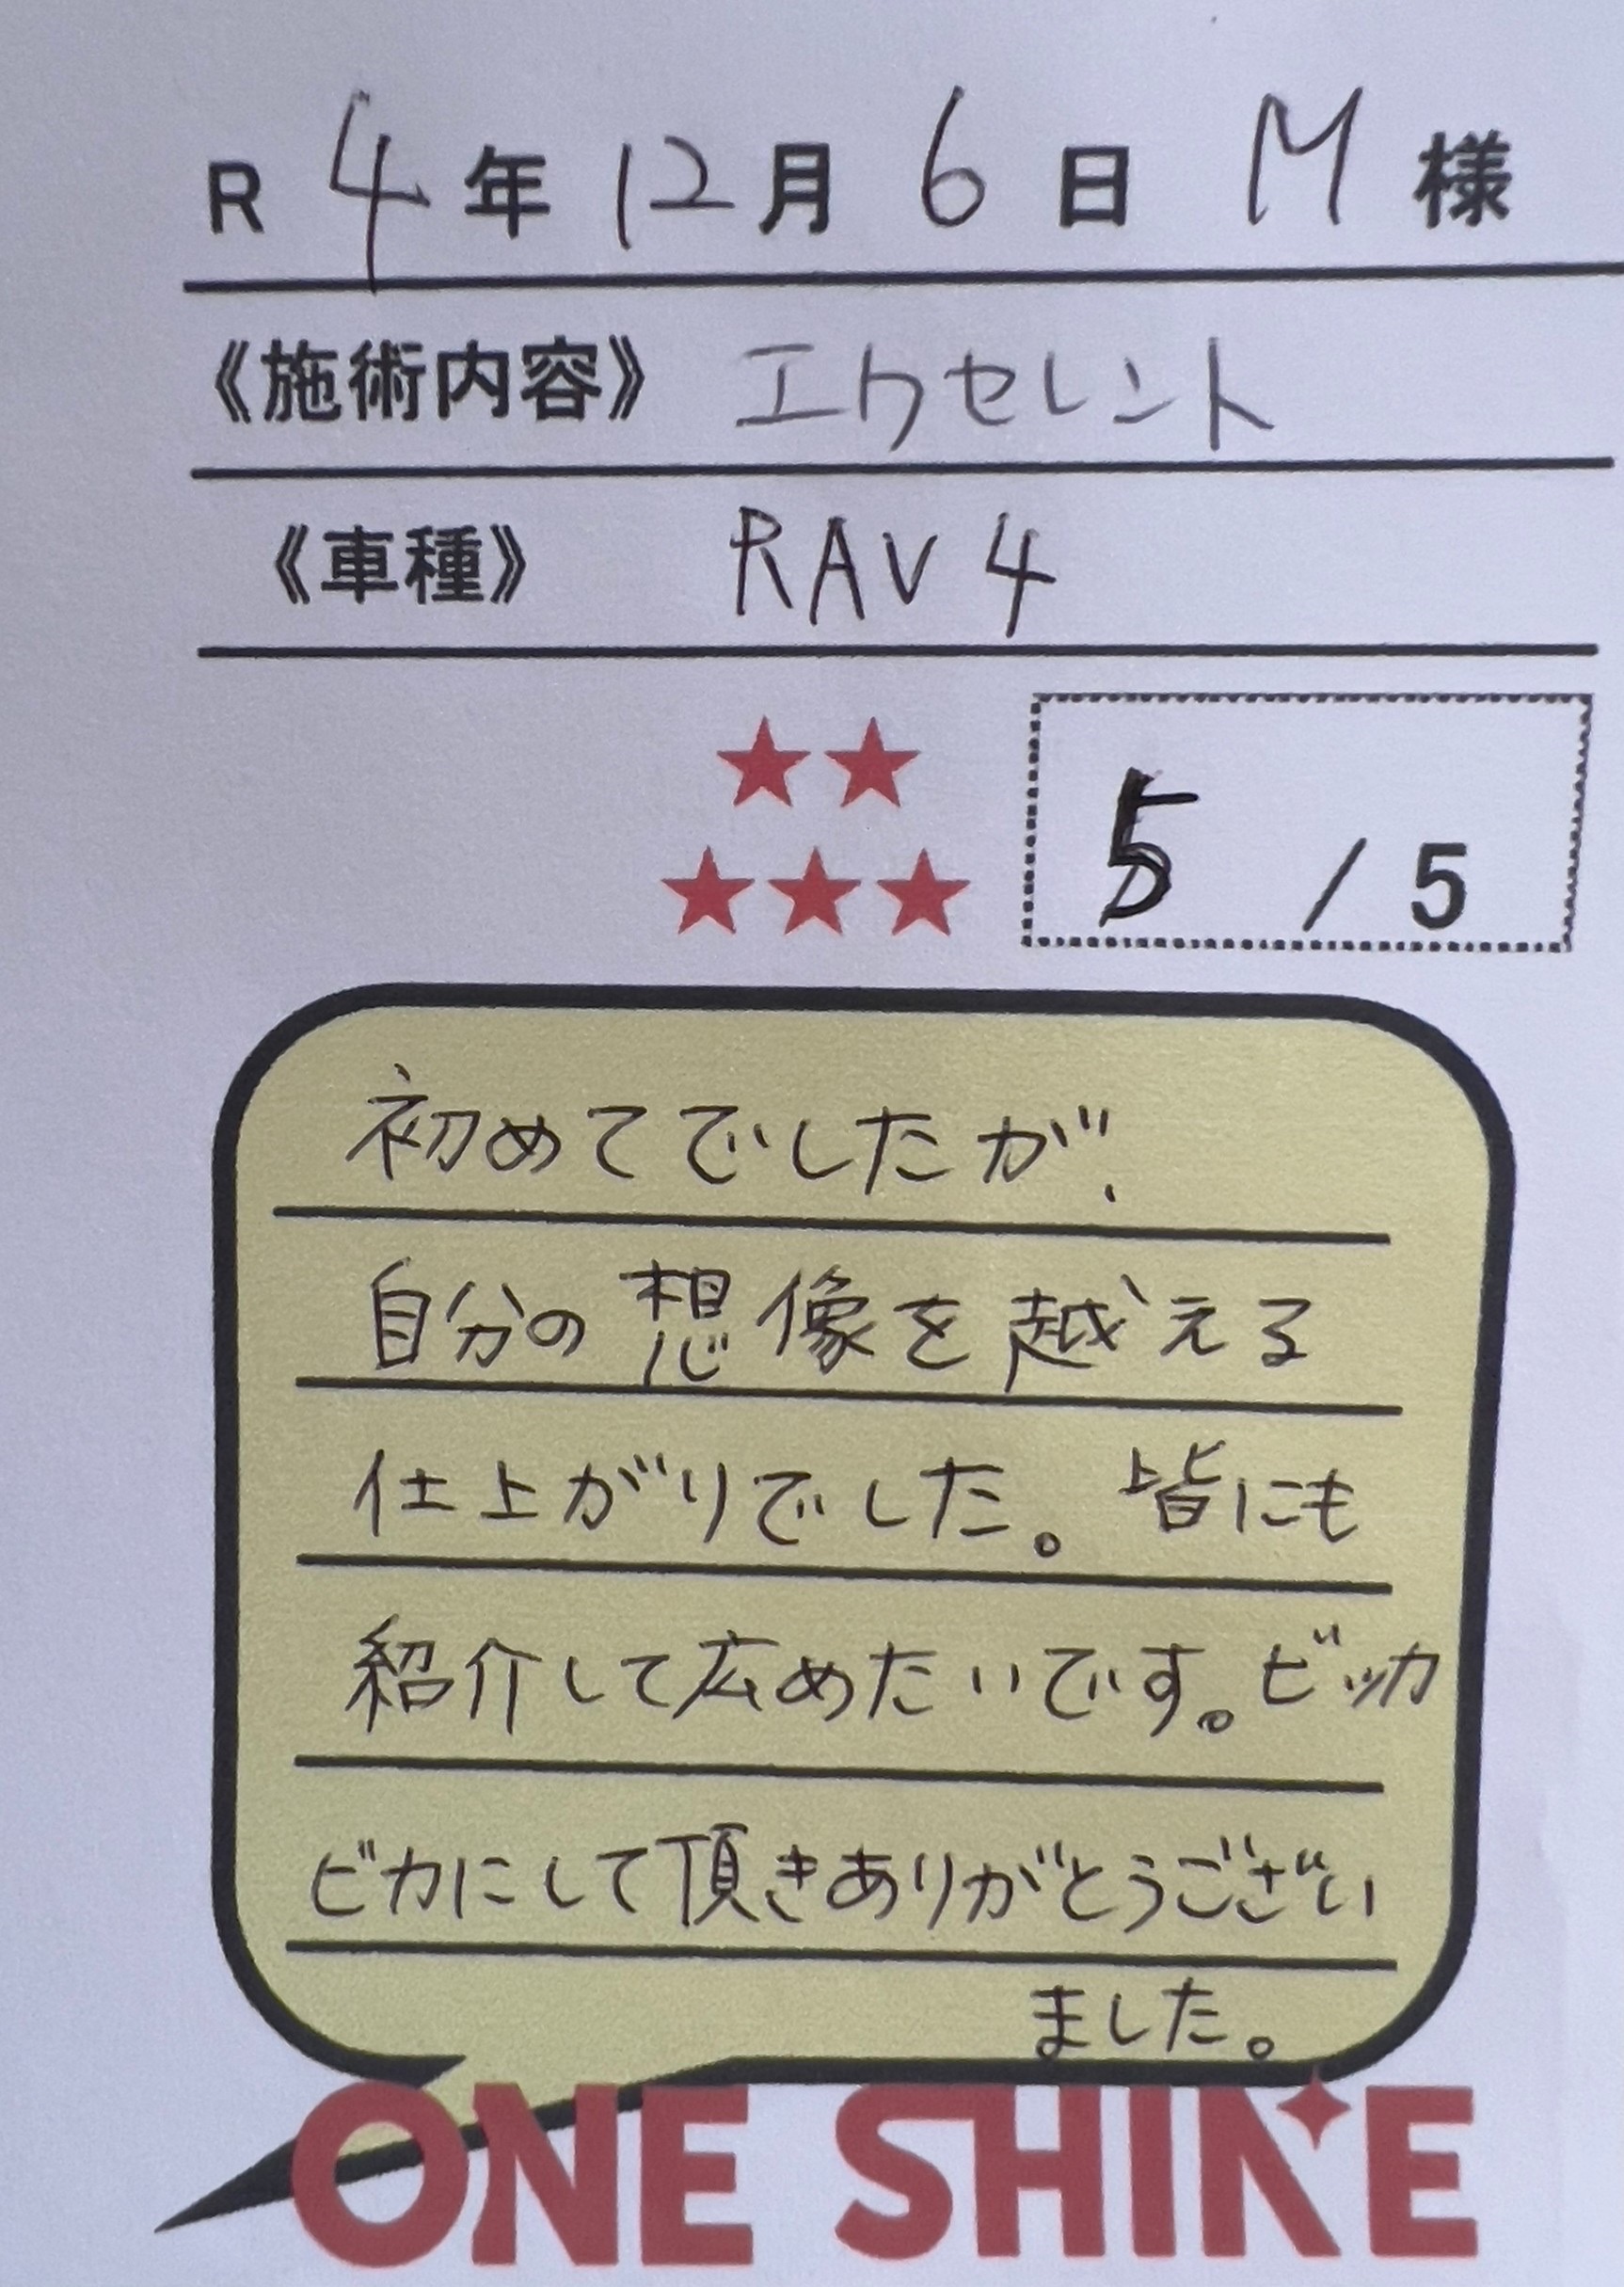 R 4 年 12 月 6 日 M 様
《施術内容》 エクセレント
《車種》 RAV4
★★
★★★
5 / 5
初めてでしたが、
自分の想像を越える
仕上がりでした。皆にも
紹介して広めたいです。ビッカ
ビカにして頂きありがとうござい
ました。
ONE SHINE